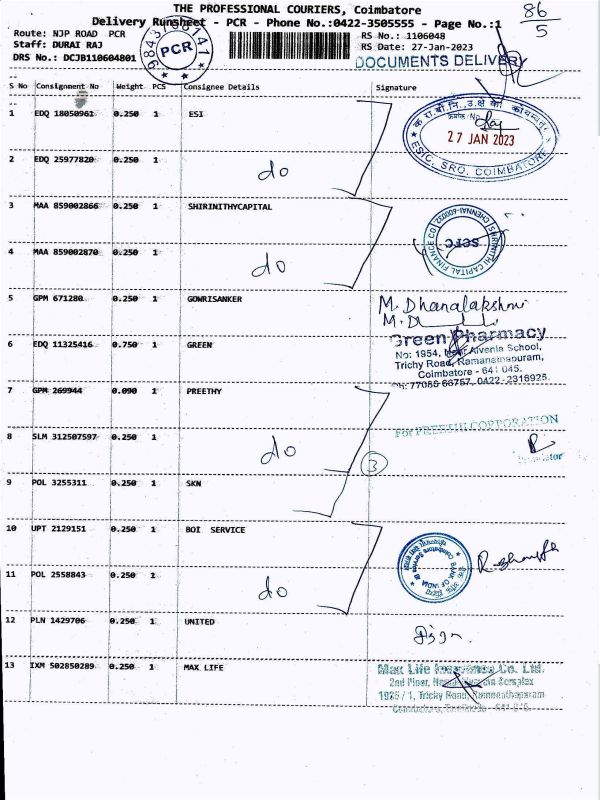 THE PROFESSIONAL COURIERS, Coimbatore
Delivery Runsheet - PCR - Phone No.:0422-3505555 - Page No.:1
86/5
Route: NJP ROAD PCR
RS No.: 1106048
Staff: DURAI RAJ
RS Date: 27-Jan-2023
DRS No.: DCJB110604801
PCR
DOCUMENTS DELIVERY
S No Consignment No Weight PCS Consignee Details Signature
1 EDQ 18050961 0.250 1 ESI
27 JAN 2023
ESIC, SRO, COIMBATORE
2 EDQ 25977820 0.250 1 do
3 MAA 859002866 0.250 1 SHIRINITHYCAPITAL
SHRINITHI CAPITAL FINANCE CO
CHENNAI-600032
SCFC
4 MAA 859002870 0.250 1 do
5 GPM 671280 0.250 1 GOWRISANKER
M. Dhanalakshmi
6 EDQ 11325416 0.750 1 GREEN
Green Pharmacy
No: 1954, Near Alvenia School,
Trichy Road, Ramanathapuram,
Coimbatore - 641 045.
7 GPM 269944 0.090 1 PREETHY
For PREETHI CORPORATION
8 SLM 312507597 0.250 1 do
3
9 POL 3255311 0.250 1 SKN
10 UPT 2129151 0.250 1 BOI SERVICE
BANK OF INDIA
11 POL 2558843 0.250 1 do
12 PLN 1429706 0.250 1 UNITED
13 IXM 502850289 0.250 1 MAX LIFE
Max Life Insurance Co. Ltd.
2nd Floor,
Trichy Road, Ramanathapuram